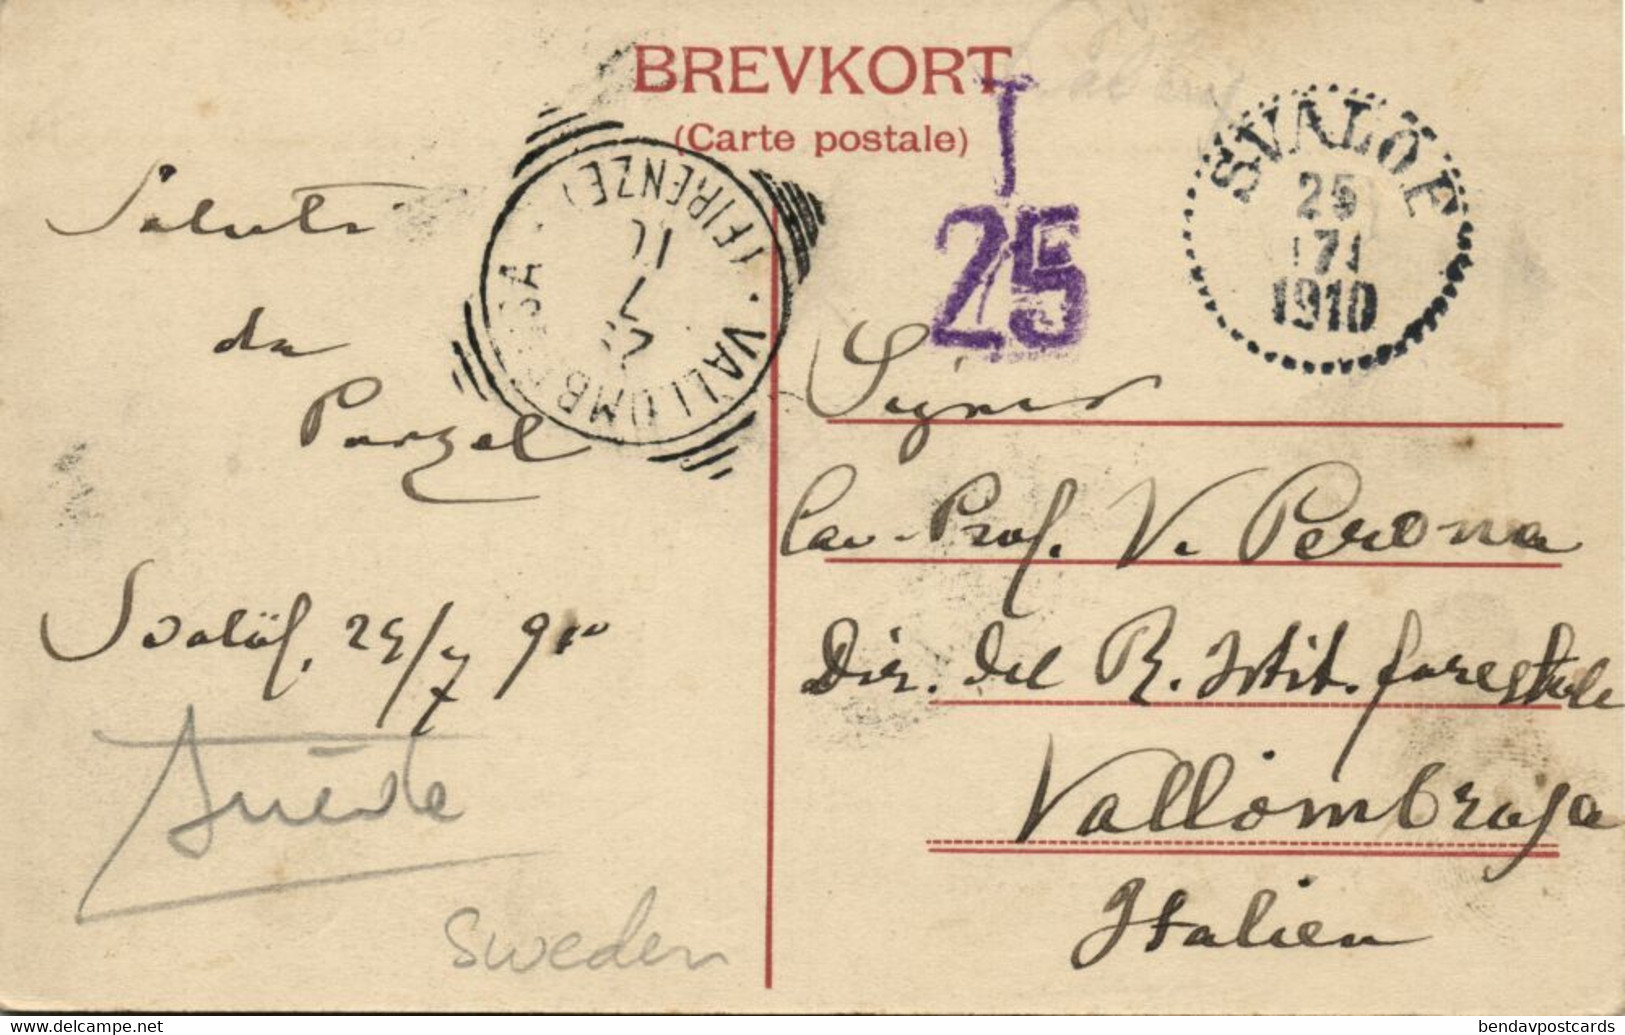 BREVKORT
(Carte postale)
T
25
SVALÖF
25
7
1910
VALLOMBROSA
(FIRENZE)
7
10
Saluti
da
Purzel
Svalöf, 25/7 910
Suède
Sweden
Signor
Cav. Prof. V. Perona
Dir. del R. Istit. forestale
Vallombrosa
Italien
www.delcampe.net
bendavpostcards